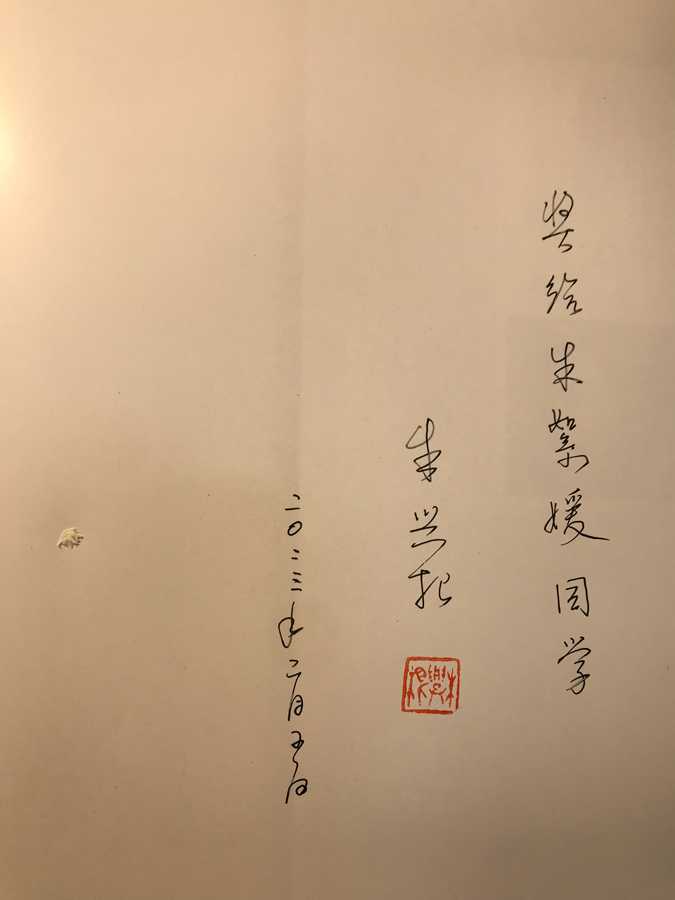 奖给朱絮媛同学
朱兴根
二〇二三年二月五日